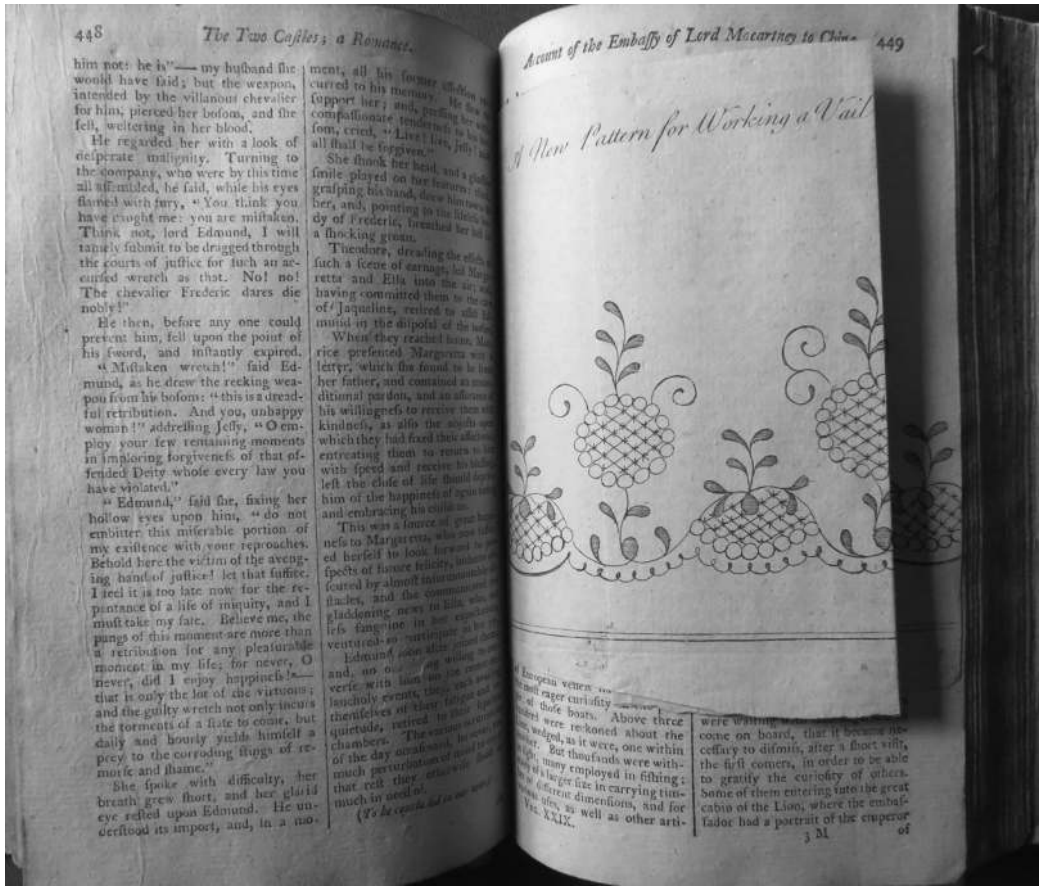 448
The Two Caſtles; a Romance.
him not: he is"— my huſband ſhe
would have ſaid; but the weapon,
intended by the villanous chevalier
for him, pierced her boſom, and ſhe
fell, weltering in her blood.
He regarded her with a look of
deſperate malignity. Turning to
the company, who were by this time
all aſſembled, he ſaid, while his eyes
flamed with fury, "You think you
have caught me: you are miſtaken.
Think not, lord Edmund, I will
tamely ſubmit to be dragged through
the courts of juſtice for ſuch an ac-
curſed wretch as that. No! no!
The chevalier Frederic dares die
nobly!"
He then, before any one could
prevent him, fell upon the point of
his ſword, and inſtantly expired.
"Miſtaken wretch!" ſaid Ed-
mund, as he drew the reeking wea-
pon from his boſom: "this is a dread-
ful retribution. And you, unhappy
woman!" addreſſing Jeſſy, "O em-
ploy your few remaining moments
in imploring forgiveneſs of that of-
fended Deity whoſe every law you
have violated."
"Edmund," ſaid ſhe, fixing her
hollow eyes upon him, "do not
embitter this miſerable portion of
my exiſtence with your reproaches.
Behold here the victim of the aveng-
ing hand of juſtice! let that ſuffice.
I feel it is too late now for the re-
pentance of a life of iniquity, and I
muſt take my fate. Believe me, the
pangs of this moment are more than
a retribution for any pleaſurable
moment in my life; for never, O
never, did I enjoy happineſs!—
that is only the lot of the virtuous;
and the guilty wretch not only incurs
the torments of a ſtate to come, but
daily and hourly yields himſelf a
prey to the corroding ſtings of re-
morſe and ſhame."
She ſpoke with difficulty, her
breath grew ſhort, and her glazed
eye reſted upon Edmund. He un-
derſtood its import, and, in a mo-
ment, all his former affection
curred to his memory. He
ſupport her; and, preſſing her
compaſſionate tenderneſs to his
ſom, cried, "Live! live, Jeſſy!
all ſhall be forgiven."
She ſhook her head, and a
ſmile played on her features:
graſping his hand, drew him
her, and, pointing to the lifeleſs
dy of Frederic, breathed her laſt in
a ſhocking groan.
Theodore, dreading the effects
ſuch a ſcene of carnage, led Marga-
retta and Ella into the air; and
having committed them to the care
of Jaqueline, retired to aſſiſt Ed-
mund in the diſpoſal of the bodies.
When they reached home, Mau-
rice preſented Margaretta with a
letter, which ſhe found to be from
her father, and contained an uncon-
ditional pardon, and an aſſurance of
his willingneſs to receive them with
kindneſs, as alſo the objects upon
which they had fixed their affections;
entreating them to return to him
with ſpeed and receive his bleſſing,
leſt the cloſe of life ſhould deprive
him of the happineſs of again
and embracing his children.
This was a ſource of great happi-
neſs to Margaretta, who now
ed herſelf to look forward to
ſpects of future felicity,
ſcured by almoſt inſurmountable
ſtacles, and ſhe communicated
gladdening news to Ella, who,
leſs ſanguine in her expectations,
ventured to participate in her
Edmund ſoon after joined them;
and, no one being willing to con-
verſe with him on the
lancholy events, they
themſelves of their fatigue and
quietude, retired to their
chambers. The various
of the day occaſioned
much perturbation of mind
that reſt they otherwiſe
much in need of.
(To be concluded in our next.)
Account of the Embaſſy of Lord Macartney to China
449
A New Pattern for Working a Vail
of European veſſels
the moſt eager curioſity
of thoſe boats. Above three
hundred were reckoned about the
wedged, as it were, one within
But thouſands were with-
many employed in fiſhing;
of a larger ſize in carrying tim-
of different dimenſions, and for
uſes, as well as other arti-
Vol. XXIX.
were waiting
come on board, that it became ne-
ceſſary to diſmiſs, after a ſhort viſit,
the firſt comers, in order to be able
to gratify the curioſity of others.
Some of them entering into the great
cabin of the Lion, where the embaſ-
ſador had a portrait of the emperor
3 M
of